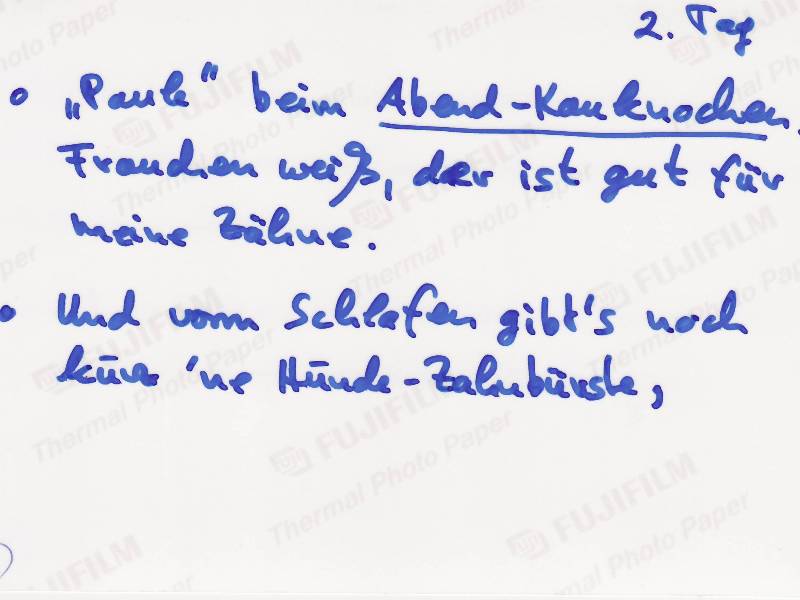 2. Tag
„Paule" beim Abend-Kauknochen.
Frauchen weiß, der ist gut für
meine Zähne.
Und vorm Schlafen gibt's noch
'ne Hunde-Zahnbürste,
FUJIFILM
Thermal Photo Paper